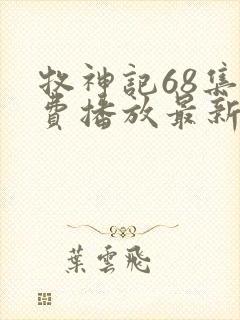 牧神記68集
費播放最新
葉雲飛